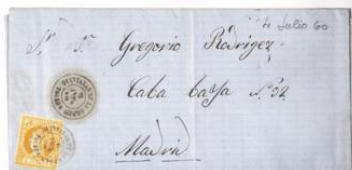 4 Julio 60
Sr. Dn. Gregorio Rodrigez
Caba baja Nº 32
Madrid